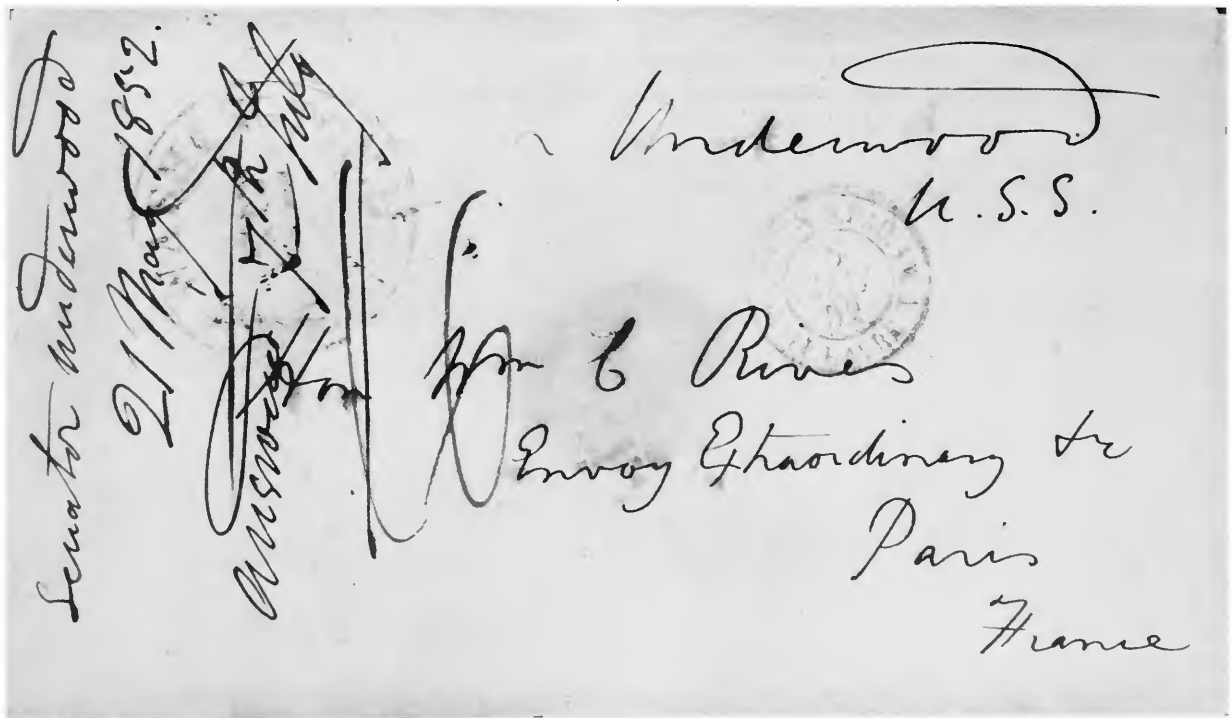 Senator Underwood
21 May 1852.
answered 7th July
Underwood
U.S.S.
Hon Wm C Rives
Envoy Extraordinary &c
Paris
France